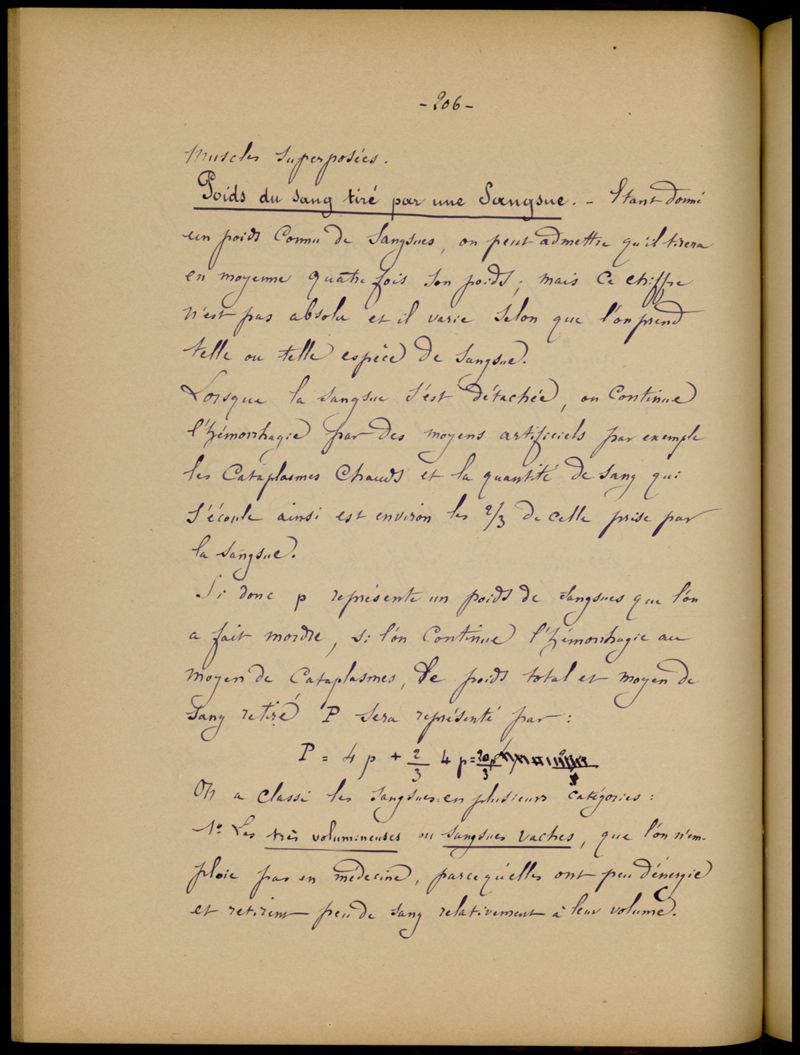 - 206 -
muscles superposées.
Poids du sang tiré par une Sangsue. - Etant donné
un poids connu de Sangsues, on peut admettre qu'il tirera
en moyenne quatre fois son poids; mais ce chiffre
n'est pas absolu et il varie selon que l'on prend
telle ou telle espèce de Sangsue.
Lorsque la sangsue s'est détachée, on continue
l'hémorrhagie par des moyens artificiels par exemple
les Cataplasmes Chauds et la quantité de sang qui
s'écoule ainsi est environ les 2/3 de celle prise par
la sangsue.
Si donc p représente un poids de sangsues que l'on
a fait mordre, si l'on continue l'hémorrhagie au
moyen de Cataplasmes, le poids total et moyen de
sang retiré P sera représenté par :
P = 4 p + 2/3 4 p = 20p/3
On a classé les sangsues en plusieurs catégories :
1o Les très volumineuses ou sangsues vaches, que l'on n'em-
ploie pas en médecine, parcequ'elles ont peu d'énergie
et retirent peu de sang relativement à leur volume.